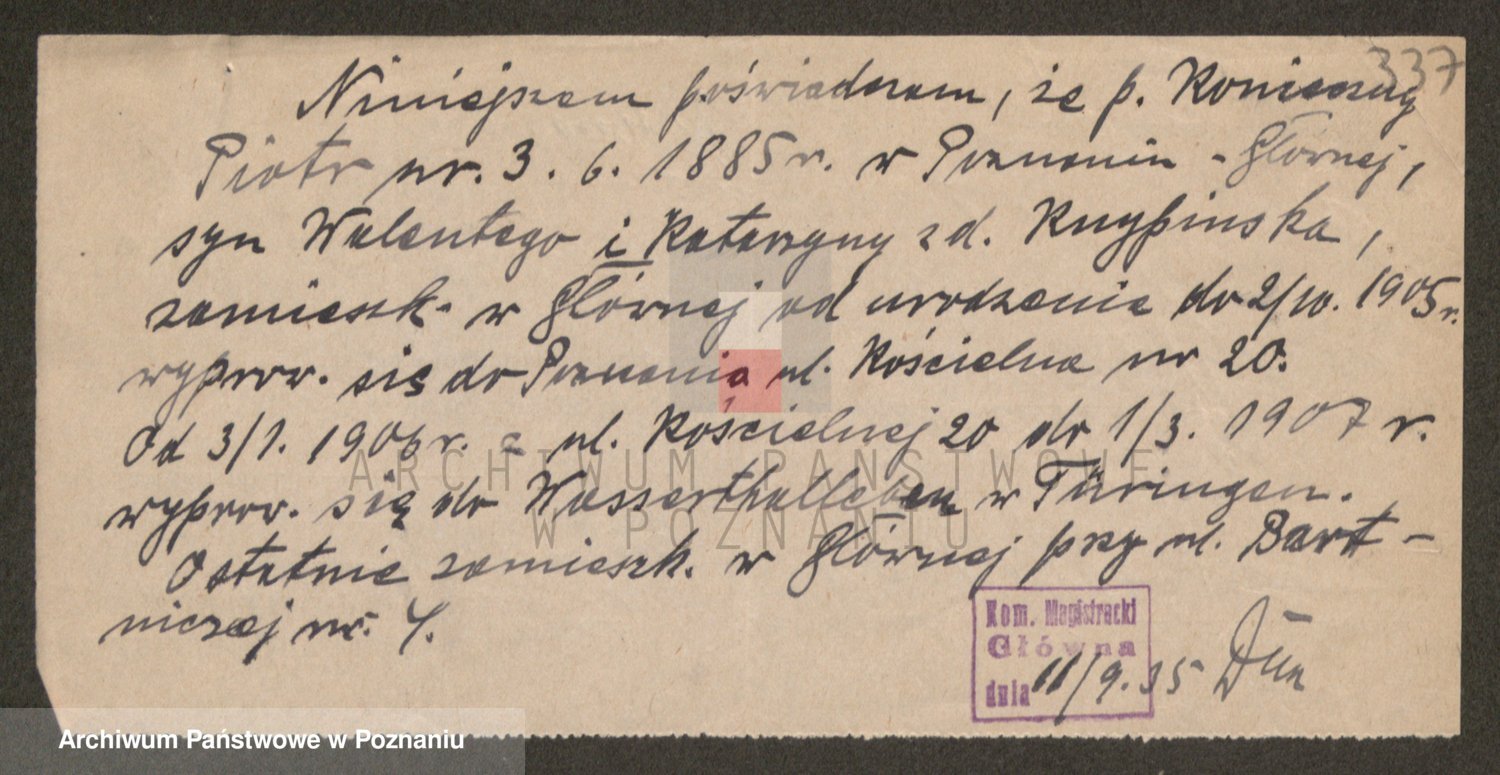 337
Niniejszem poświadczam, że p. Konieczny
Piotr ur. 3. 6. 1885 r. w Poznaniu - Głównej,
syn Walentego i Katarzyny z d. Knypinska,
zamieszk. w Głównej od urodzenia do 2/10. 1905 r.
wyprow. się do Poznania ul. Kościelna nr 20.
Od 3/1. 1906 r. z ul. Kościelnej 20 do 1/3. 1907 r.
wyprow. się do Wasserthalleben w Thüringen.
Ostatnie zamieszk. w Głównej przy ul. Bart-
niczej nr. 4.
Kom. Magistracki
Główna
dnia 11/9. 35
ARCHIWUM PAŃSTWOWE
W POZNANIU
Archiwum Państwowe w Poznaniu